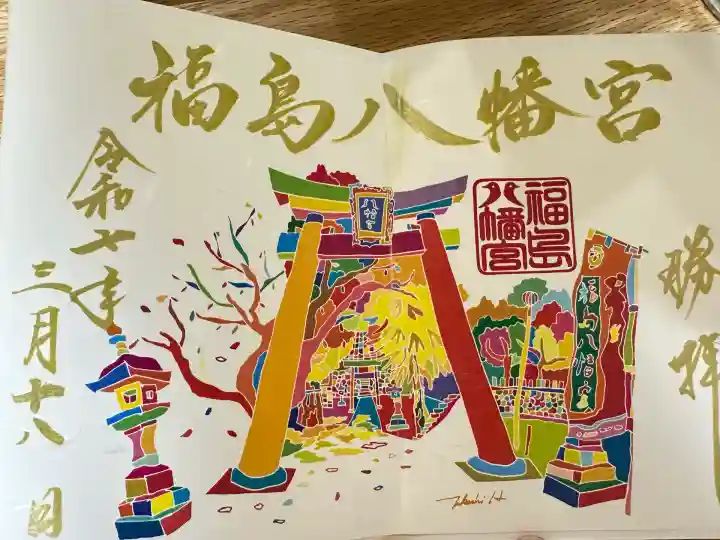 福島八幡宮
令和七年
三月十八日
八幡宮
福島
八幡宮
福島八幡宮
拝